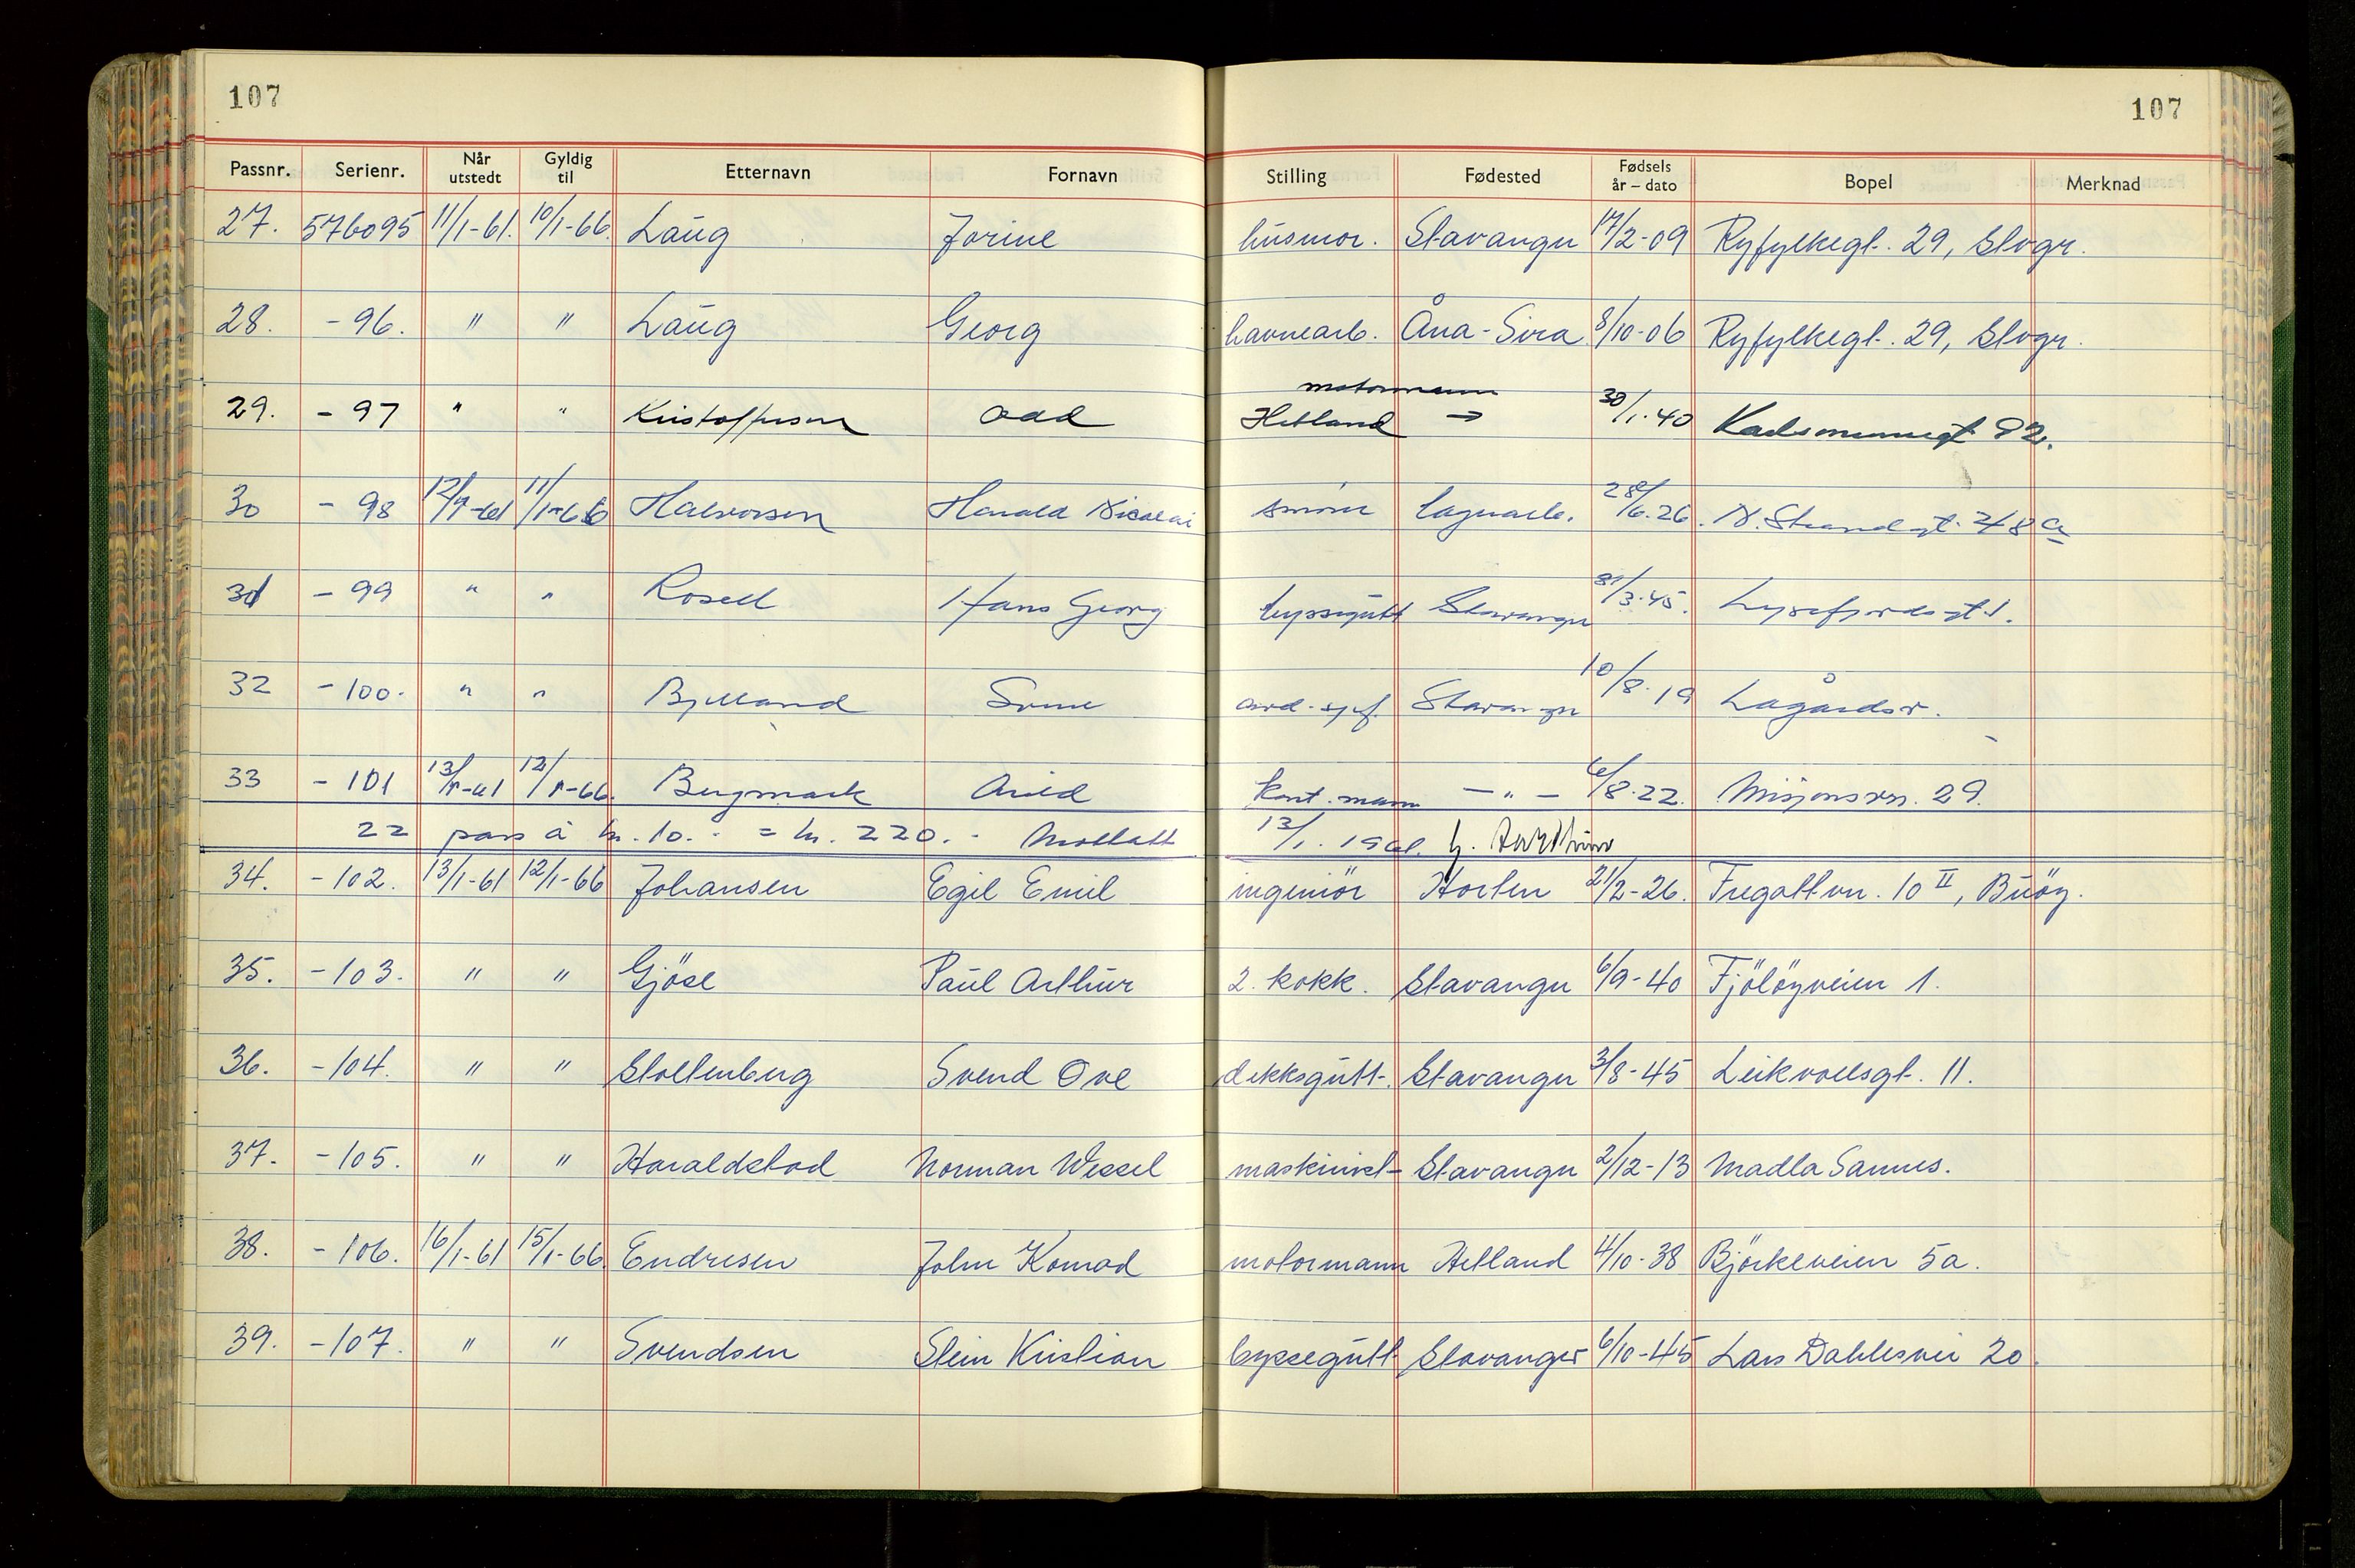 107 107
Passnr. Serienr. Når utstedt Gyldig til Etternavn Fornavn Stilling Fødested Fødsels år – dato Bopel Merknad
27. 576095 11/1-61. 10/1-66. Laug Jorine husmor. Stavanger 17/2-09 Ryfylkegt. 29, Stvgr.
28. - 96. " " Laug Georg havnearb. Åna-Sira 8/10-06 Ryfylkegt. 29, Stvgr.
motormann
29. - 97 " " Kristoffersen Odd Hetland → 30/1-40 92.
30 - 98 12/1-61 11/1-66 Halvorsen Harald Nicolai lagerarb. 28/6.26. N. Strandgt. 48 a
31 - 99 " " Rosell Hans Georg byssegutt Stavanger 31/3.45. Lysefjordsgt 1.
32 - 100. " " Bjelland Sverre Stavanger 10/8.19 Lagårdsv.
33 - 101 13/1-61 12/1-66. Bergmark Arild kont. mann - " - 6/8.22. Misjonsvn. 29.
22 pass à kr. 10.- = kr. 220.- Mottatt 13/1. 1961.
34. - 102. 13/1-61 12/1-66 Johansen Egil Emil ingeniör Horten 21/2-26. Fregattvn. 10 II, Buöy.
35. - 103. " " Gjöse Paul Arthur 2. kokk. Stavanger 6/9-40 Fjölöyveien 1.
36. - 104. " " Stoltenberg Svend Ove dekksgutt. Stavanger 3/8-45 Leikvollsgt. 11.
37. - 105. " " Haraldstad Norman Wessel maskinist- Stavanger 2/12-13 Madla Sannes.
38. - 106. 16/1-61 15/1-66. Endresen John Konrad motormann Hetland 4/10-38 Björkeveien 5a.
39. - 107. " " Svendsen Stein Kristian byssegutt Stavanger 6/10-45 Lars Dahlesvei 20.